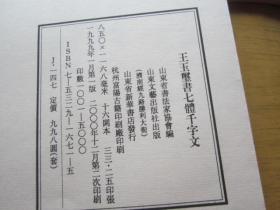 王玉璽書七體千字文
山東省書法家協會編
山東文藝出版社出版
(濟南經九路勝利大街)
山東省新華書店發行
杭州富陽古籍印刷廠印刷
八五〇×一一六八毫米 十六開本 三三·二五印張
一九九九年一月第一版 二〇〇〇年十二月第二次印刷
印數一〇〇一—五〇〇〇
ISBN七—五三二九—一六七一—五
J·一四七 定價 九九八圓(套)